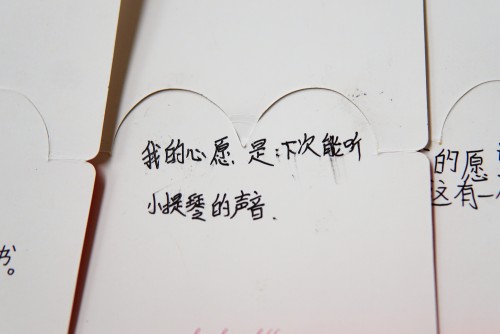 我的心愿是:下次能听
小提琴的声音.
的愿
这有一
书。